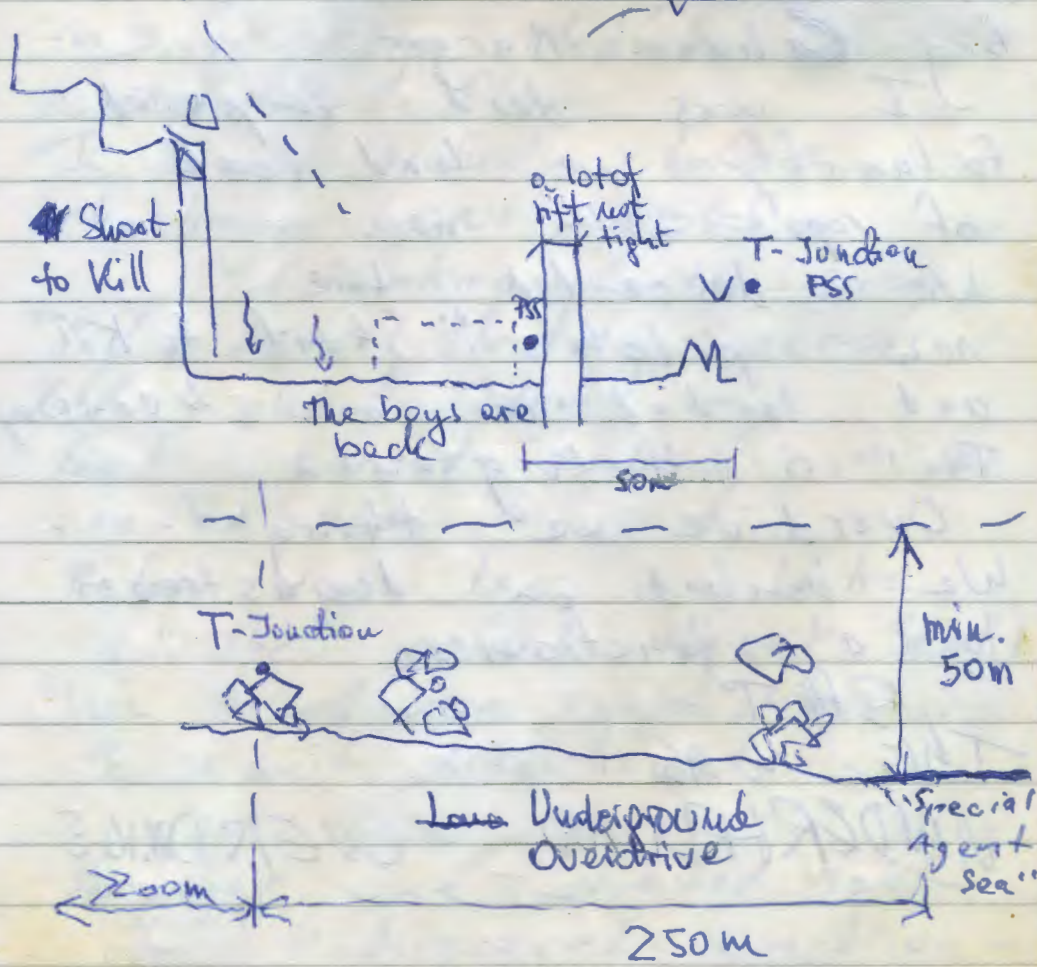 a lot of
rift not
tight
Shoot
to Kill
T-Junction
PSS
PSS
The boys are
back
50m
T-Junction
min.
50m
Underground
Overdrive
"Special
Agent
Sea"
200m
250m